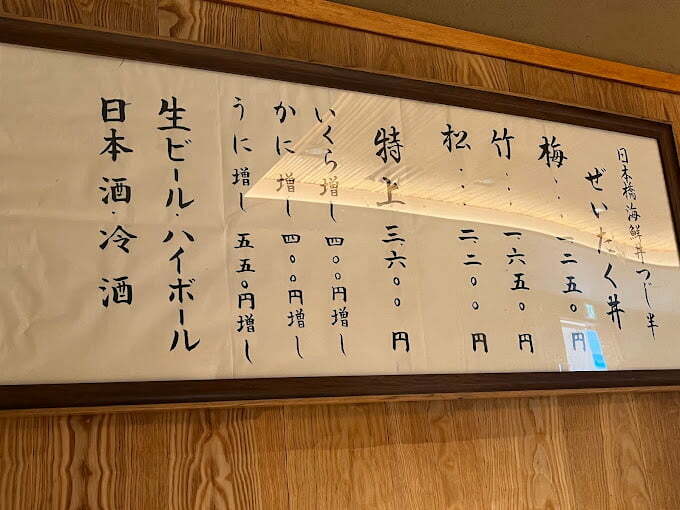 日本橋海鮮丼つじ半
ぜいたく丼
梅…一二五〇円
竹…一六五〇円
松…二二〇〇円
特上三六〇〇円
いくら増し四〇〇円増し
かに増し四〇〇円増し
うに増し五五〇円増し
生ビール・ハイボール
日本酒・冷酒